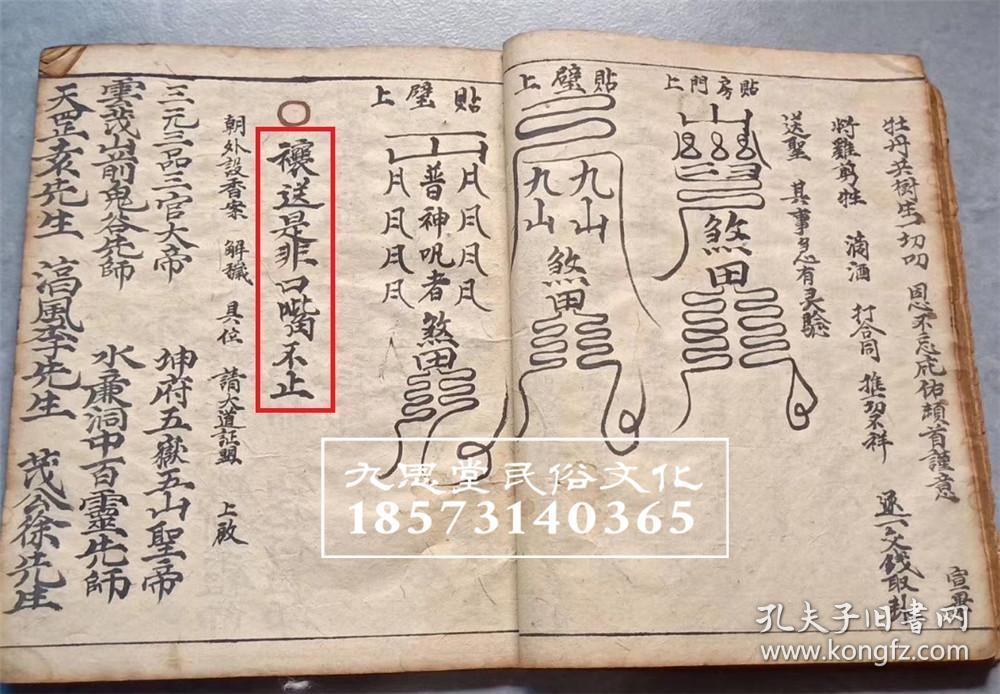 牡丹共樹生一切切 恩不忘成佑頓首謹意 宣畢
將雞剪牲 滴酒 打合同 推切不祥 逐一交錢取卦
送聖 其事多有灵驗
貼房門上
煞田
貼壁上
九山
九山
煞田
貼壁上
月月月月
普神呪者煞田
月月月月
禳送是非口嘴不止
朝外設香案 解穢 具位 請大道証盟 上啟
三元三品三官大帝 坤府五嶽五山聖帝
雲茂山前鬼谷先師 水簾洞中百靈先師
天罡袁先生 淳風李先生 茂公徐先生
九思堂民俗文化
18573140365
孔夫子旧书网
www.kongfz.com